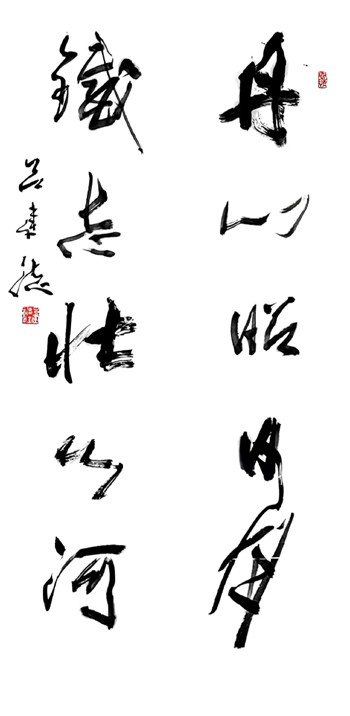 丹心昭日月
鐵志壯山河